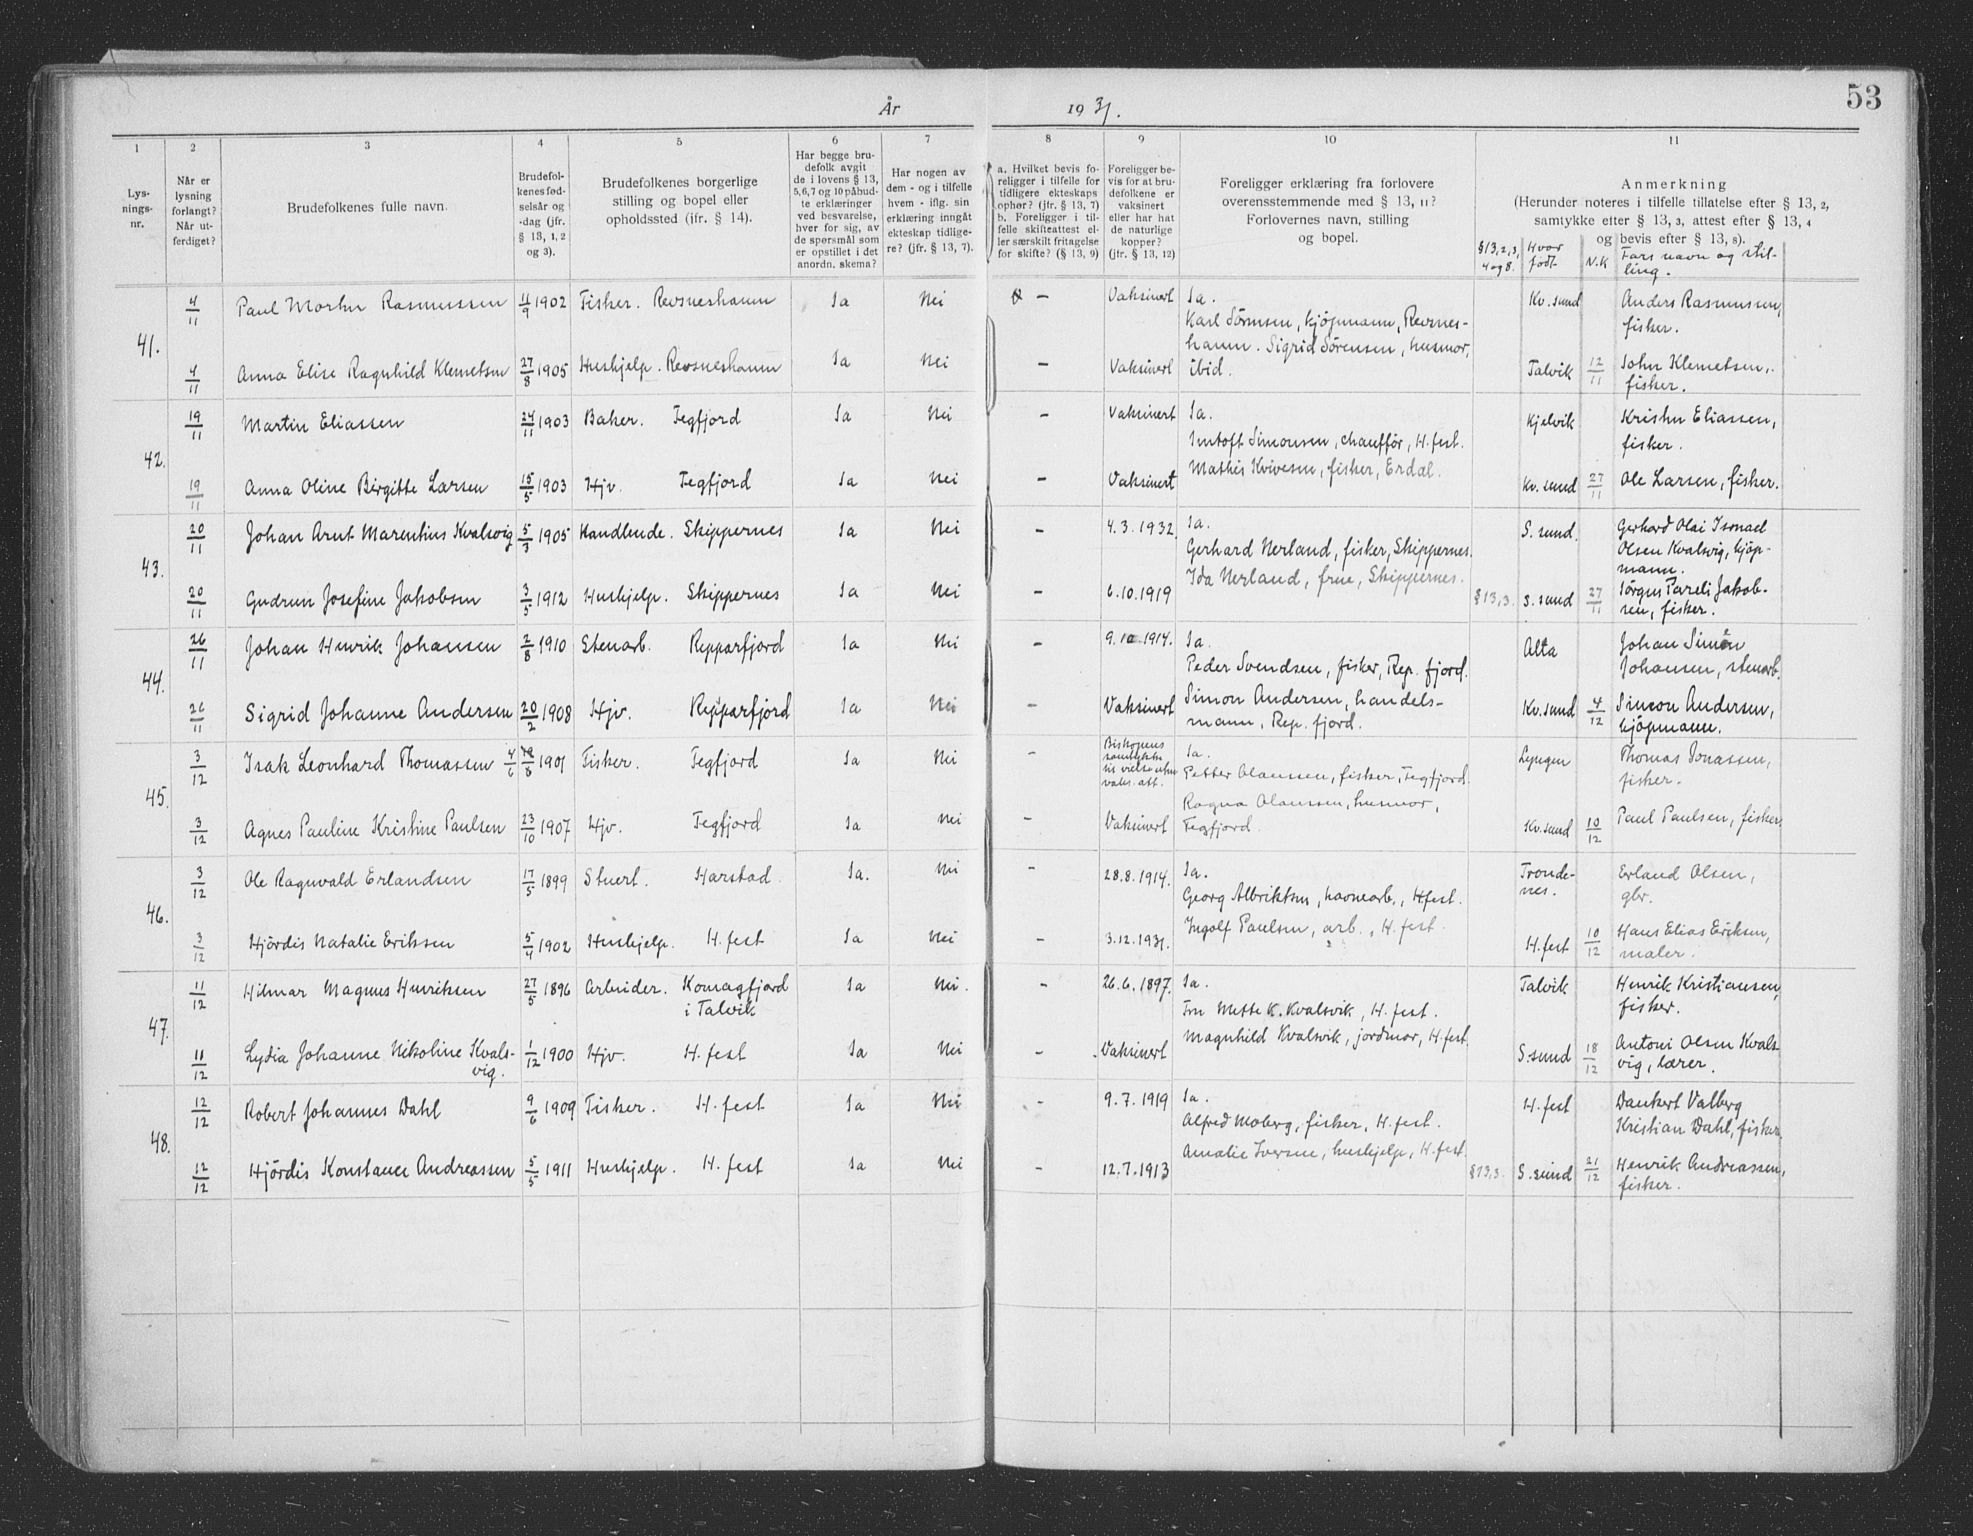 53
År 1931.
1 2 3 4 5 6 7 8 9 10 11
Lys-
nings-
nr.
Når er
lysning
forlangt?
Når ut-
ferdiget?
Brudefolkenes fulle navn.
Brudefol-
kenes fød-
selsår og
-dag (jfr.
§ 13, 1, 2
og 3).
Brudefolkenes borgerlige
stilling og bopel eller
opholdssted (jfr. § 14).
Har begge bru-
defolk avgit
de i lovens § 13,
5,6,7 og 10 påbud-
te erklæringer
ved besvarelse,
hver for sig, av
de spørsmål som
er opstillet i det
anordn. skema?
Har nogen av
dem - og i tilfelle
hvem - iflg. sin
erklæring inngått
ekteskap tidlige-
re? (jfr. § 13, 7).
a. Hvilket bevis fo-
religger i tilfelle for
tidligere ekteskaps
ophør? (jfr. § 13, 7)
b. Foreligger i til-
felle skifteattest el-
ler særskilt fritagelse
for skifte? (§ 13, 9)
Foreligger be-
vis for at bru-
defolkene er
vaksinert
eller har hat
de naturlige
kopper?
(jfr. § 13, 12)
Foreligger erklæring fra forlovere
overensstemmende med § 13, 11?
Forlovernes navn, stilling
og bopel.
Anmerkning
(Herunder noteres i tilfelle tillatelse efter § 13, 2,
samtykke efter § 13, 3, attest efter § 13, 4
og bevis efter § 13, 8).
§13,2,3, 4 og 8.
Hvor født.
N.K
Fars navn og stil-
ling.
41.
4/11 Paul Morten Rasmussen 11/9 1902 Fisker. Revsneshamn Ja Nei – Vaksinert Ja. Kv.sund Anders Rasmussen,
fisker.
Karl Sörensen, kjöpmann, Revsnes-
hamn. Sigrid Sörensen, husmor,
ibid.
4/11 Anna Elise Ragnhild Klemetsen 27/8 1905 Hushjelp. Revsneshamn Ja Nei – Vaksinert Talvik 12/11 John Klemetsen,
fisker.
42.
19/11 Martin Eliassen 24/11 1903 Baker. Tegfjord Ja Nei – Vaksinert Ja. Kjelvik Kristen Eliassen,
fisker.
Simonsen, chaufför, H.fest.
Mathis Kvivesen, fisker, Erdal.
19/11 Anna Oline Birgitte Larsen 15/5 1903 Hjv. Tegfjord Ja Nei – Vaksinert Kv.sund 27/11 Ole Larsen, fisker.
43.
20/11 Johan Arnt Marentius Kvalsvig 5/3 1905 Handlende. Skippernes Ja Nei – 4.3.1932. Ja. S.sund. Gerhard Olai Ismael
Olsen Kvalsvig, kjöp-
mann.
Gerhard Nerland, fisker, Skippernes.
Ida Nerland, frue, Skippernes.
20/11 Gudrun Josefine Jakobsen 3/5 1912 Hushjelp. Skippernes Ja Nei – 6.10.1919 §13,3. S.sund 27/11 Jörgen Pareli Jakob-
sen, fisker.
44.
26/11 Johan Henrik Johansen 2/8 1910 Stenarb. Repparfjord Ja Nei – 9.10.1914. Ja. Alta Johan Simon
Johansen, stenarb.
Peder Svendsen, fisker, Rep.fjord.
Simon Andersen, handels-
mann, Rep.fjord.
26/11 Sigrid Johanne Andersen 20/2 1908 Hjv. Repparfjord Ja Nei – Vaksinert Kv.sund 4/12 Simon Andersen,
kjöpmann.
45.
3/12 Isak Leonhard Thomassen 4/6 1901 Fisker. Tegfjord Ja Nei – Biskopens
samtykke
til vielse uten
vaks. att.
Ja. Lyngen Thomas Jonassen,
fisker.
Petter Olaussen, fisker, Tegfjord.
Ragna Olaussen, husmor,
Tegfjord.
3/12 Agnes Pauline Kristine Paulsen 23/10 1907 Hjv. Tegfjord Ja Nei – Vaksinert Kv.sund 10/12 Paul Paulsen, fisker.
46.
3/12 Ole Ragnvald Erlandsen 17/5 1899 Stuert. Harstad. Ja. Nei – 28.8.1914. Ja. Tronde-
nes. Erland Olsen,
gbr.
Georg Albriktsen, havnearb., H.fest.
Ingolf Paulsen, arb., H.fest.
3/12 Hjördis Natalie Eriksen 5/4 1902 Hushjelp. H.fest Ja Nei – 3.12.1931. H.fest 10/12 Hans Elias Eriksen,
maler.
47.
11/12 Hilmar Magnus Henriksen 27/5 1896 Arbeider. Komagfjord
i Talvik Ja Nei. – 26.6.1897. Ja. Talvik Henrik Kristiansen,
fisker.
Fru Mette K. Kvalsvik, H.fest.
Magnhild Kvalsvik, jordmor, H.fest.
11/12 Lydia Johanne Nikoline Kvals-
vig. 1/12 1900 Hjv. H.fest Ja Nei – Vaksinert S.sund 18/12 Antoni Olsen Kvals-
vig, lærer.
48.
12/12 Robert Johannes Dahl 9/6 1909 Fisker. H.fest Ja Nei – 9.7.1919 Ja. H.fest Dankert Valberg
Kristian Dahl, fisker.
Alfred Moberg, fisker, H.fest.
Amalie Iversen, hushjelp, H.fest.
12/12 Hjördis Konstance Andreassen 5/5 1911 Hushjelp. H.fest Ja Nei – 12.7.1913 §13,3. S.sund 21/12 Henrik Andreassen,
fisker.